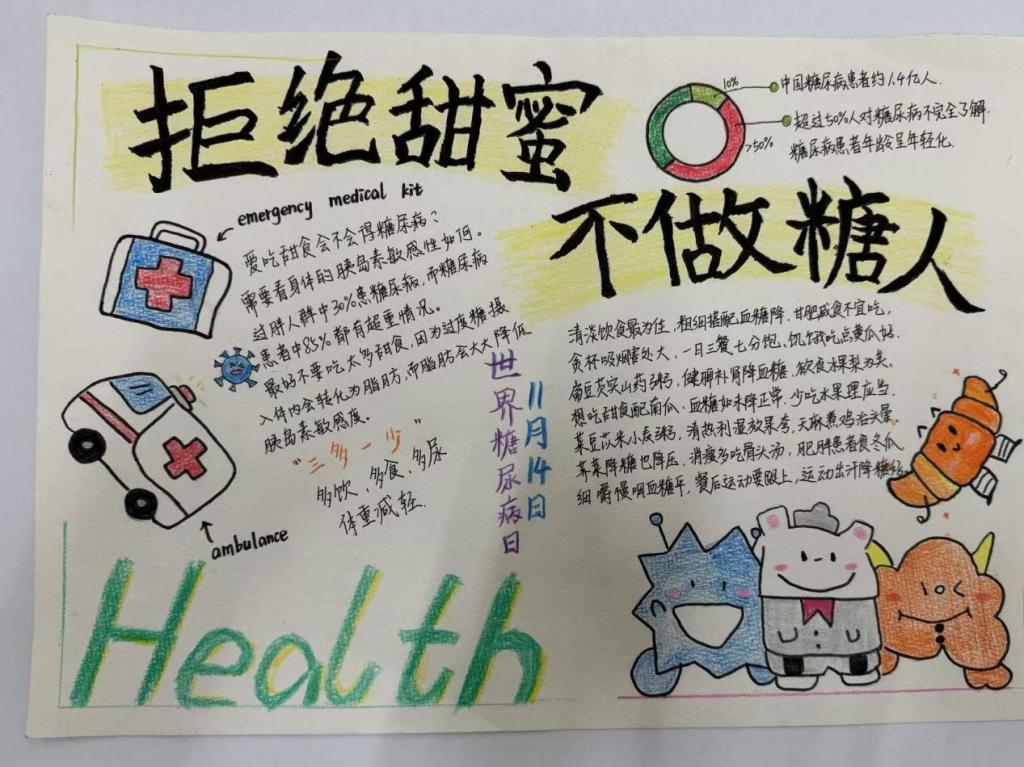 拒绝甜蜜
不做糖人
10%
中国糖尿病患者约1.4亿人.
超过50%人对糖尿病不完全了解.
>50%
糖尿病患者年龄呈年轻化.
emergency medical kit
爱吃甜食会不会得糖尿病?
需要看身体的胰岛素敏感性如何。
过胖人群中30%患糖尿病,而糖尿病
患者中85%都有超重情况。
最好不要吃太多甜食,因为过度糖摄
入体内会转化为脂肪,而脂肪会大大降低
胰岛素敏感度。
"三多一少"
多饮、多食、多尿
体重减轻.
ambulance
世界糖尿病日
11月14日
清淡饮食最为佳,粗细搭配血糖降.甘肥咸食不宜吃,
贪杯吸烟害处大,一日三餐七分饱、饥饿我吃点黄瓜好.
角豆芡实山药粥,健脾补肾降血糖,饮食水果梨为美.
想吃甜食配南瓜,血糖如未降正常,少吃水果理应当.
菉豆苡米小麦粥,清热利湿效果夸,天麻煮鸡治头晕.
芹菜降糖也降压,消瘦多吃骨头汤,肥胖患者食冬瓜.
细嚼慢咽血糖平,餐后运动要跟上,运动出汗降糖好.
Health